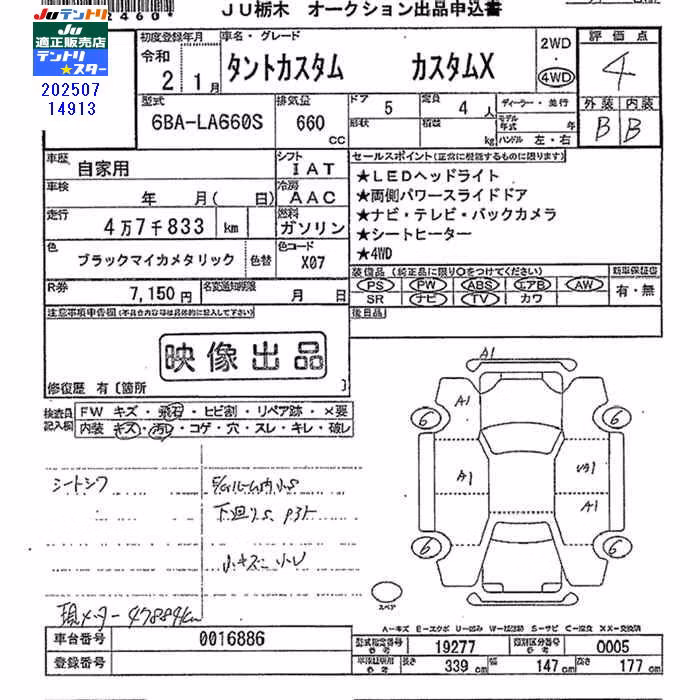 JU栃木 オークション出品申込書
Ju テントリ
Ju
適正販売店
テントリ
★スター
202507
14913
2460
初度登録年月
令和
2 1月
車名・グレード
タントカスタム カスタムX
2WD
・
4WD
評価点
4
外装 内装
B B
型式
6BA-LA660S
排気量
660
cc
ドア
5
定員
4 人
形状
積載
kg
ディーラー・並行
モデル年式 年
ハンドル 左・右
車歴
自家用
シフト
IAT
車検
年 月( 日)
冷房
AAC
走行
4万7千833 km
燃料
ガソリン
色
ブラックマイカメタリック
色替
色コード
X07
R券
7,150円
名変通知期限
月 日
セールスポイント(正常に機能するものに限ります)
★LEDヘッドライト
★両側パワースライドドア
★ナビ・テレビ・バックカメラ
★シートヒーター
★4WD
装備品(純正品に限り○をつけてください)
PS PW ABS エアB AW
SR ナビ TV カワ
新車保証書
有・無
後日品
注意事項申告欄(不具合内容は具体的に記入して下さい)
映像出品
修復歴 有〔箇所 〕
検査員
記入欄
FW キズ・飛石・ヒビ割・リペア跡・×要
内装 キズ・汚レ・コゲ・穴・スレ・キレ・破レ
シートシワ
下回りS
小キズ 小U
現メーター 47884km
A1
A1
A1
A1
6
6
6
6
スペア
A-キズ E-エクボ U-凹み W-補修跡 S-サビ C-腐食 XX-交換済
車台番号
0016886
登録番号
型式指定番号
参考
19277
類別区分番号
参考
0005
長さ
339 cm
幅
147 cm
高さ
177 cm